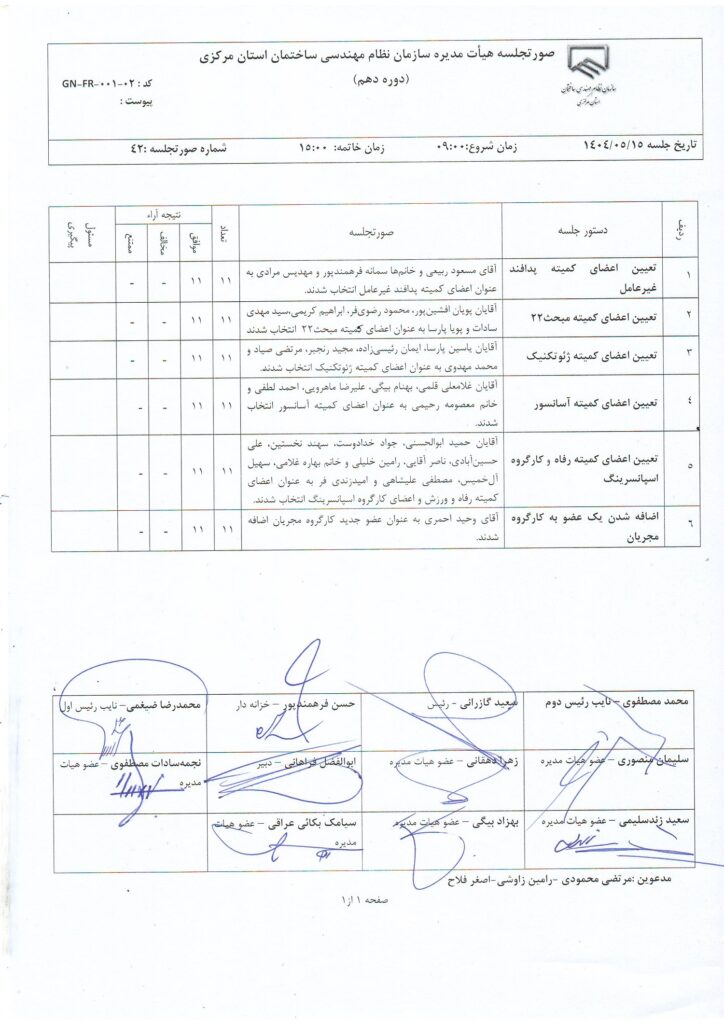 صورتجلسه هیأت مدیره سازمان نظام مهندسی ساختمان استان مرکزی
(دوره دهم)
سازمان نظام مهندسی ساختمان
استان مرکزی
کد : GN-FR-۰۰۱-۰۲
پیوست :
تاریخ جلسه ۱۴۰۴/۰۵/۱۵ زمان شروع:۰۹:۰۰ زمان خاتمه: ۱۵:۰۰ شماره صورتجلسه :۴۲
ردیف دستور جلسه صورتجلسه تعداد نتیجه آراء مسئول پیگیری
موافق مخالف ممتنع
۱ تعیین اعضای کمیته پدافند غیرعامل
آقای مسعود ربیعی و خانم‌ها سمانه فرهمندپور و مهدیس مرادی به
عنوان اعضای کمیته پدافند غیرعامل انتخاب شدند.
۱۱ ۱۱ - -
۲ تعیین اعضای کمیته مبحث۲۲
آقایان پویان افشین‌پور، محمود رضوی‌فر، ابراهیم کریمی،سید مهدی
سادات و پویا پارسا به عنوان اعضای کمیته مبحث۲۲ انتخاب شدند
۱۱ ۱۱ - -
۳ تعیین اعضای کمیته ژئوتکنیک
آقایان یاسین پارسا، ایمان رئیسی‌زاده، مجید رنجبر، مرتضی صیاد و
محمد مهدوی به عنوان اعضای کمیته ژئوتکنیک انتخاب شدند.
۱۱ ۱۱ - -
۴ تعیین اعضای کمیته آسانسور
آقایان غلامعلی قلمی، بهنام بیگی، علیرضا ماهرویی، احمد لطفی و
خانم معصومه رحیمی به عنوان اعضای کمیته آسانسور انتخاب
شدند.
۱۱ ۱۱ - -
۵ تعیین اعضای کمیته رفاه و کارگروه
اسپانسرینگ
آقایان حمید ابوالحسنی، جواد خدادوست، سهند نخستین، علی
حسین‌آبادی، ناصر آقایی، رامین خلیلی و خانم بهاره غلامی، سهیل
آل‌خمیس، مصطفی علیشاهی و امیدزندی فر به عنوان اعضای
کمیته رفاه و ورزش و اعضای کارگروه اسپانسرینگ انتخاب شدند.
۱۱ ۱۱ - -
۶ اضافه شدن یک عضو به کارگروه
مجریان
آقای وحید احمری به عنوان عضو جدید کارگروه مجریان اضافه
شدند.
۱۱ ۱۱ - -
محمد مصطفوی – نایب رئیس دوم سعید گازرانی - رئیس حسن فرهمندپور – خزانه دار محمدرضا ضیغمی – نایب رئیس اول
سلیمان منصوری – عضو هیات مدیره زهرا دهقانی – عضو هیات مدیره ابوالفضل فراهانی – دبیر نجمه‌سادات مصطفوی – عضو هیات
مدیره
سعید زندسلیمی – عضو هیات مدیره بهزاد بیگی – عضو هیات مدیره سیامک بکائی عراقی – عضو هیات
مدیره
مدعوین :مرتضی محمودی -رامین زاوشی-اصغر فلاح
صفحه ۱ از۱